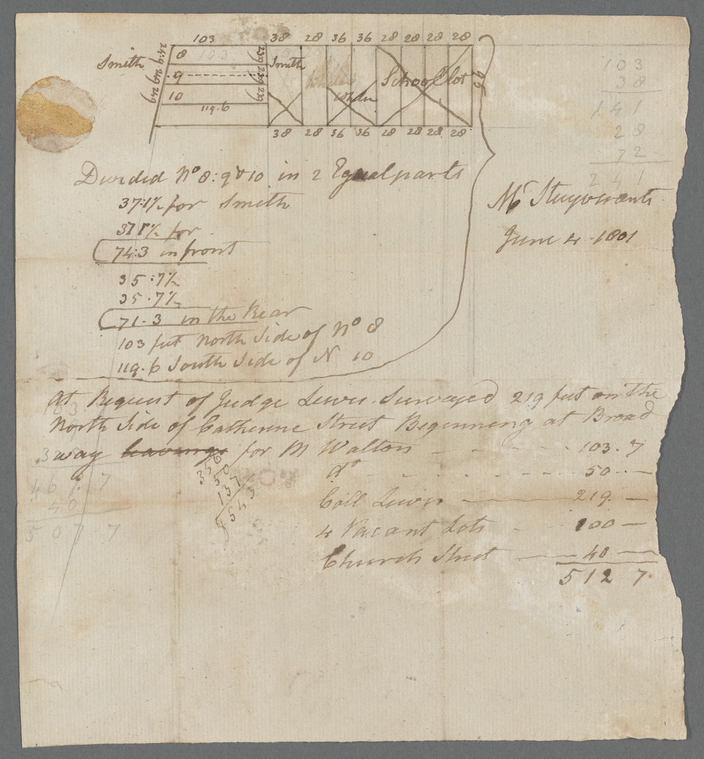 103 38 28 36 36 28 28 28 28
Smith 24.9 8 23.9 Smith
24.9 9 23.9 School lot 95
24.9 10 23.9
119.6
38 28 36 36 28 28 28 28
Divided No 8: 9 & 10 in 2 Equal parts
37.1½ for Smith
37.1½ for
74.3 in front
35.7½
35.7½
71.3 in the Rear
103 feet North Side of No 8
119.6 South Side of N 10
Mr Stuyvesants
June 4 1801
103
38
141
28
72
241
At Request of Judge Lewis Surveyed 219 feet on the
North Side of Catherine Street Beginning at Broad
way leavings for M Walton 103.7
Do 50
Coll Lewis 219
4 Vacant Lots 100
Church Street 40
512 7
467 7
40
507 7